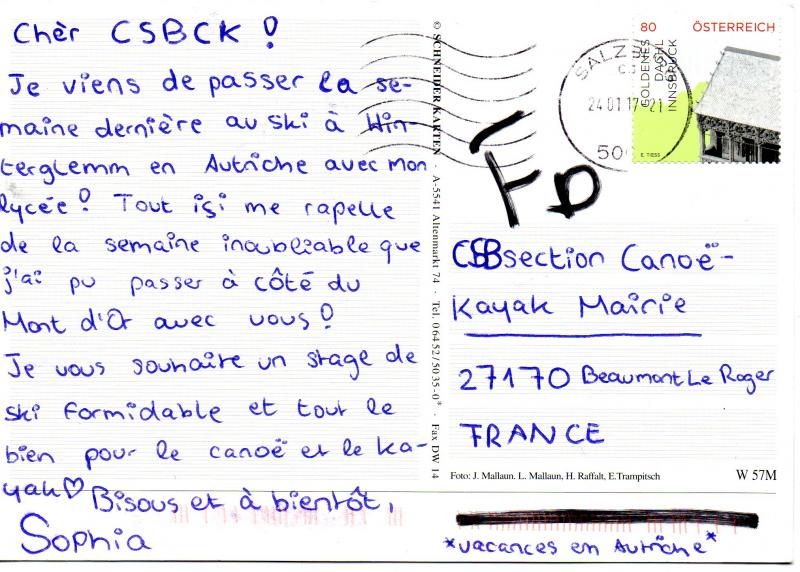 Chèr CSBCK !
Je viens de passer la se-
maine dernière au ski à Hin-
terglemm en Autriche avec mon
lycée! Tout içi me rapelle
de la semaine inoubliable que
j'ai pu passer à côté du
Mont d'Or avec vous!
Je vous souhaite un stage de
ski formidable et tout le
bien pour le canoë et le ka-
yak♡ Bisous et à bientôt,
Sophia
© SCHNEIDER KARTEN · A-5541 Altenmarkt 74 · Tel. 06452/5035-0* · Fax DW 14
SALZB
24.01.17-21
50
80 ÖSTERREICH
GOLDENES
DACHL
INNSBRUCK
E. TIESS
CSB section Canoë-
Kayak Mairie
27170 Beaumont Le Roger
FRANCE
Foto: J. Mallaun. L. Mallaun, H. Raffalt, E.Trampitsch
W 57M
*vacances en Autriche*